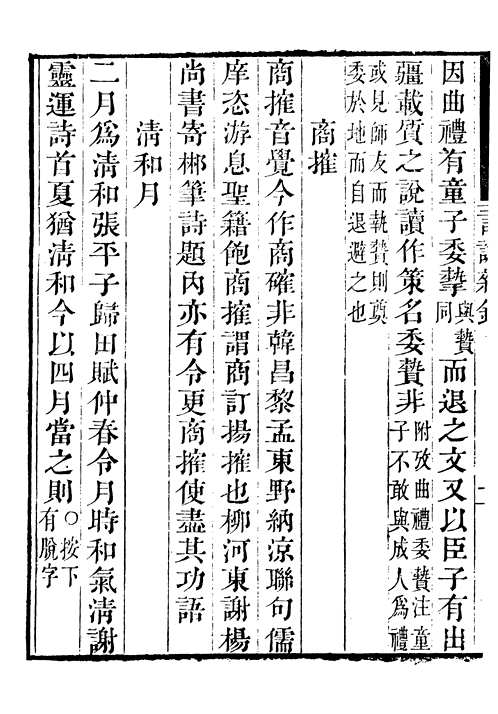 因曲禮有童子委摯與贄同而退之文又以臣子有出
疆載質之說讀作策名委贄非附攷曲禮委贄注童子不敢與成人爲禮
或見師友而執贄則奠委於地而自退避之也
商搉
商搉音覺今作商確非韓昌黎孟東野納涼聯句儒
庠恣游息聖籍飽商搉謂商訂揚搉也柳河東謝楊
尚書寄郴筆詩題內亦有令更商搉使盡其功語
清和月
二月爲清和張平子歸田賦仲春令月時和氣清謝
靈運詩首夏猶清和今以四月當之則○按下有脫字